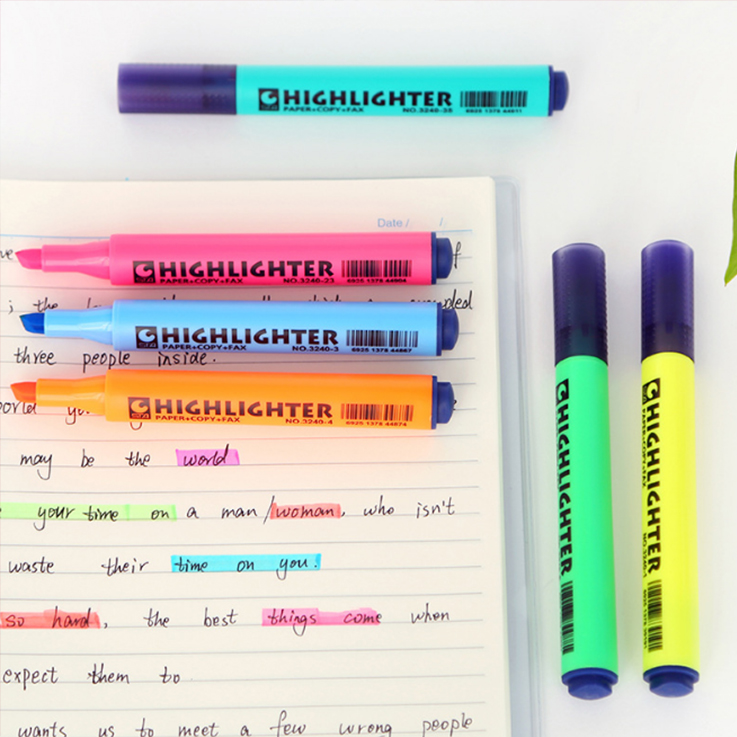 HIGHLIGHTER
PAPER+COPY+FAX NO.3240-35 6925 1378 44911
Date / /
HIGHLIGHTER
PAPER+COPY+FAX NO.3240-23 6925 1378 44904
; the
HIGHLIGHTER
PAPER+COPY+FAX NO.3240-3 6925 1378 44867
three people inside.
HIGHLIGHTER
PAPER+COPY+FAX NO.3240-4 6925 1378 44874
may be the world
your time on a man/woman, who isn't
waste their time on you.
so hard, the best things come when
expect them to
wants us to meet a few wrong people
HIGHLIGHTER
HIGHLIGHTER